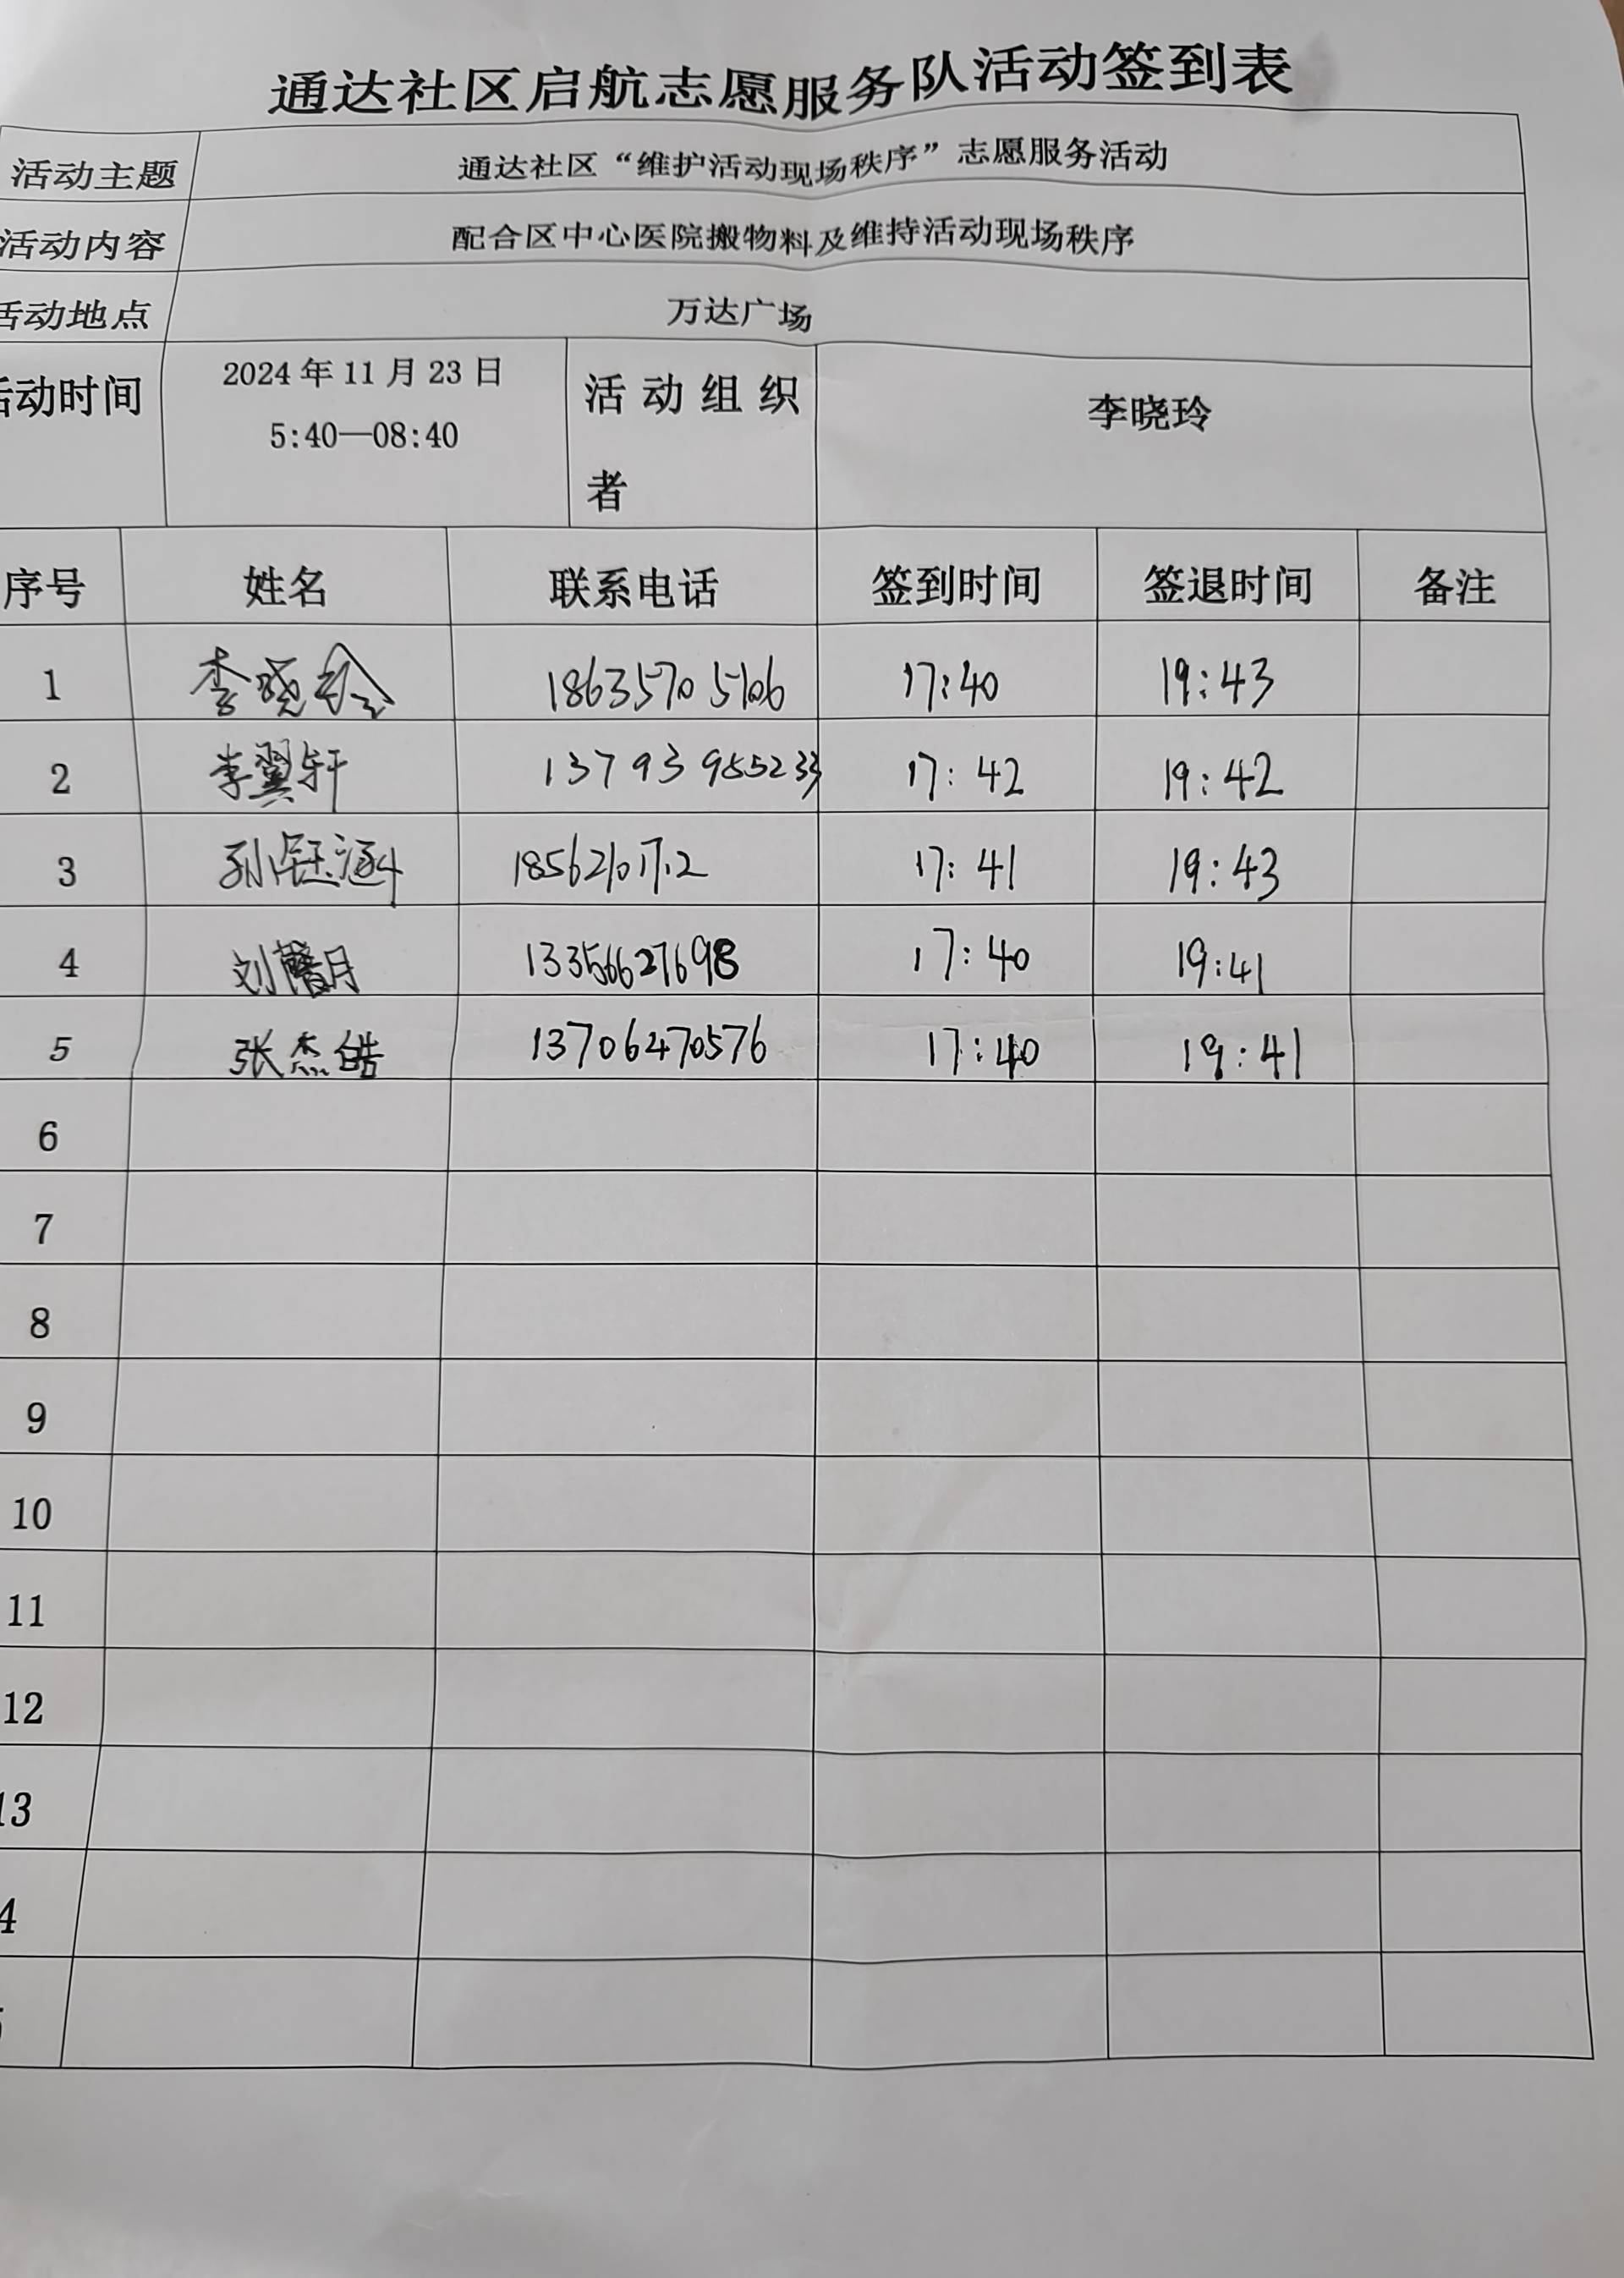 通达社区启航志愿服务队活动签到表
活动主题 通达社区“维护活动现场秩序”志愿服务活动
活动内容 配合区中心医院搬物料及维持活动现场秩序
活动地点 万达广场
活动时间 2024年11月23日 5:40—08:40 活动组织者 李晓玲
序号 姓名 联系电话 签到时间 签退时间 备注
1 李晓玲 18635705106 17:40 19:43
2 李翼轩 13793985233 17:42 19:42
3 孙钰涵 17:41 19:43
4 刘馨月 13356627698 17:40 19:41
5 张杰皓 13706470576 17:40 19:41
6
7
8
9
10
11
12
13
4
5